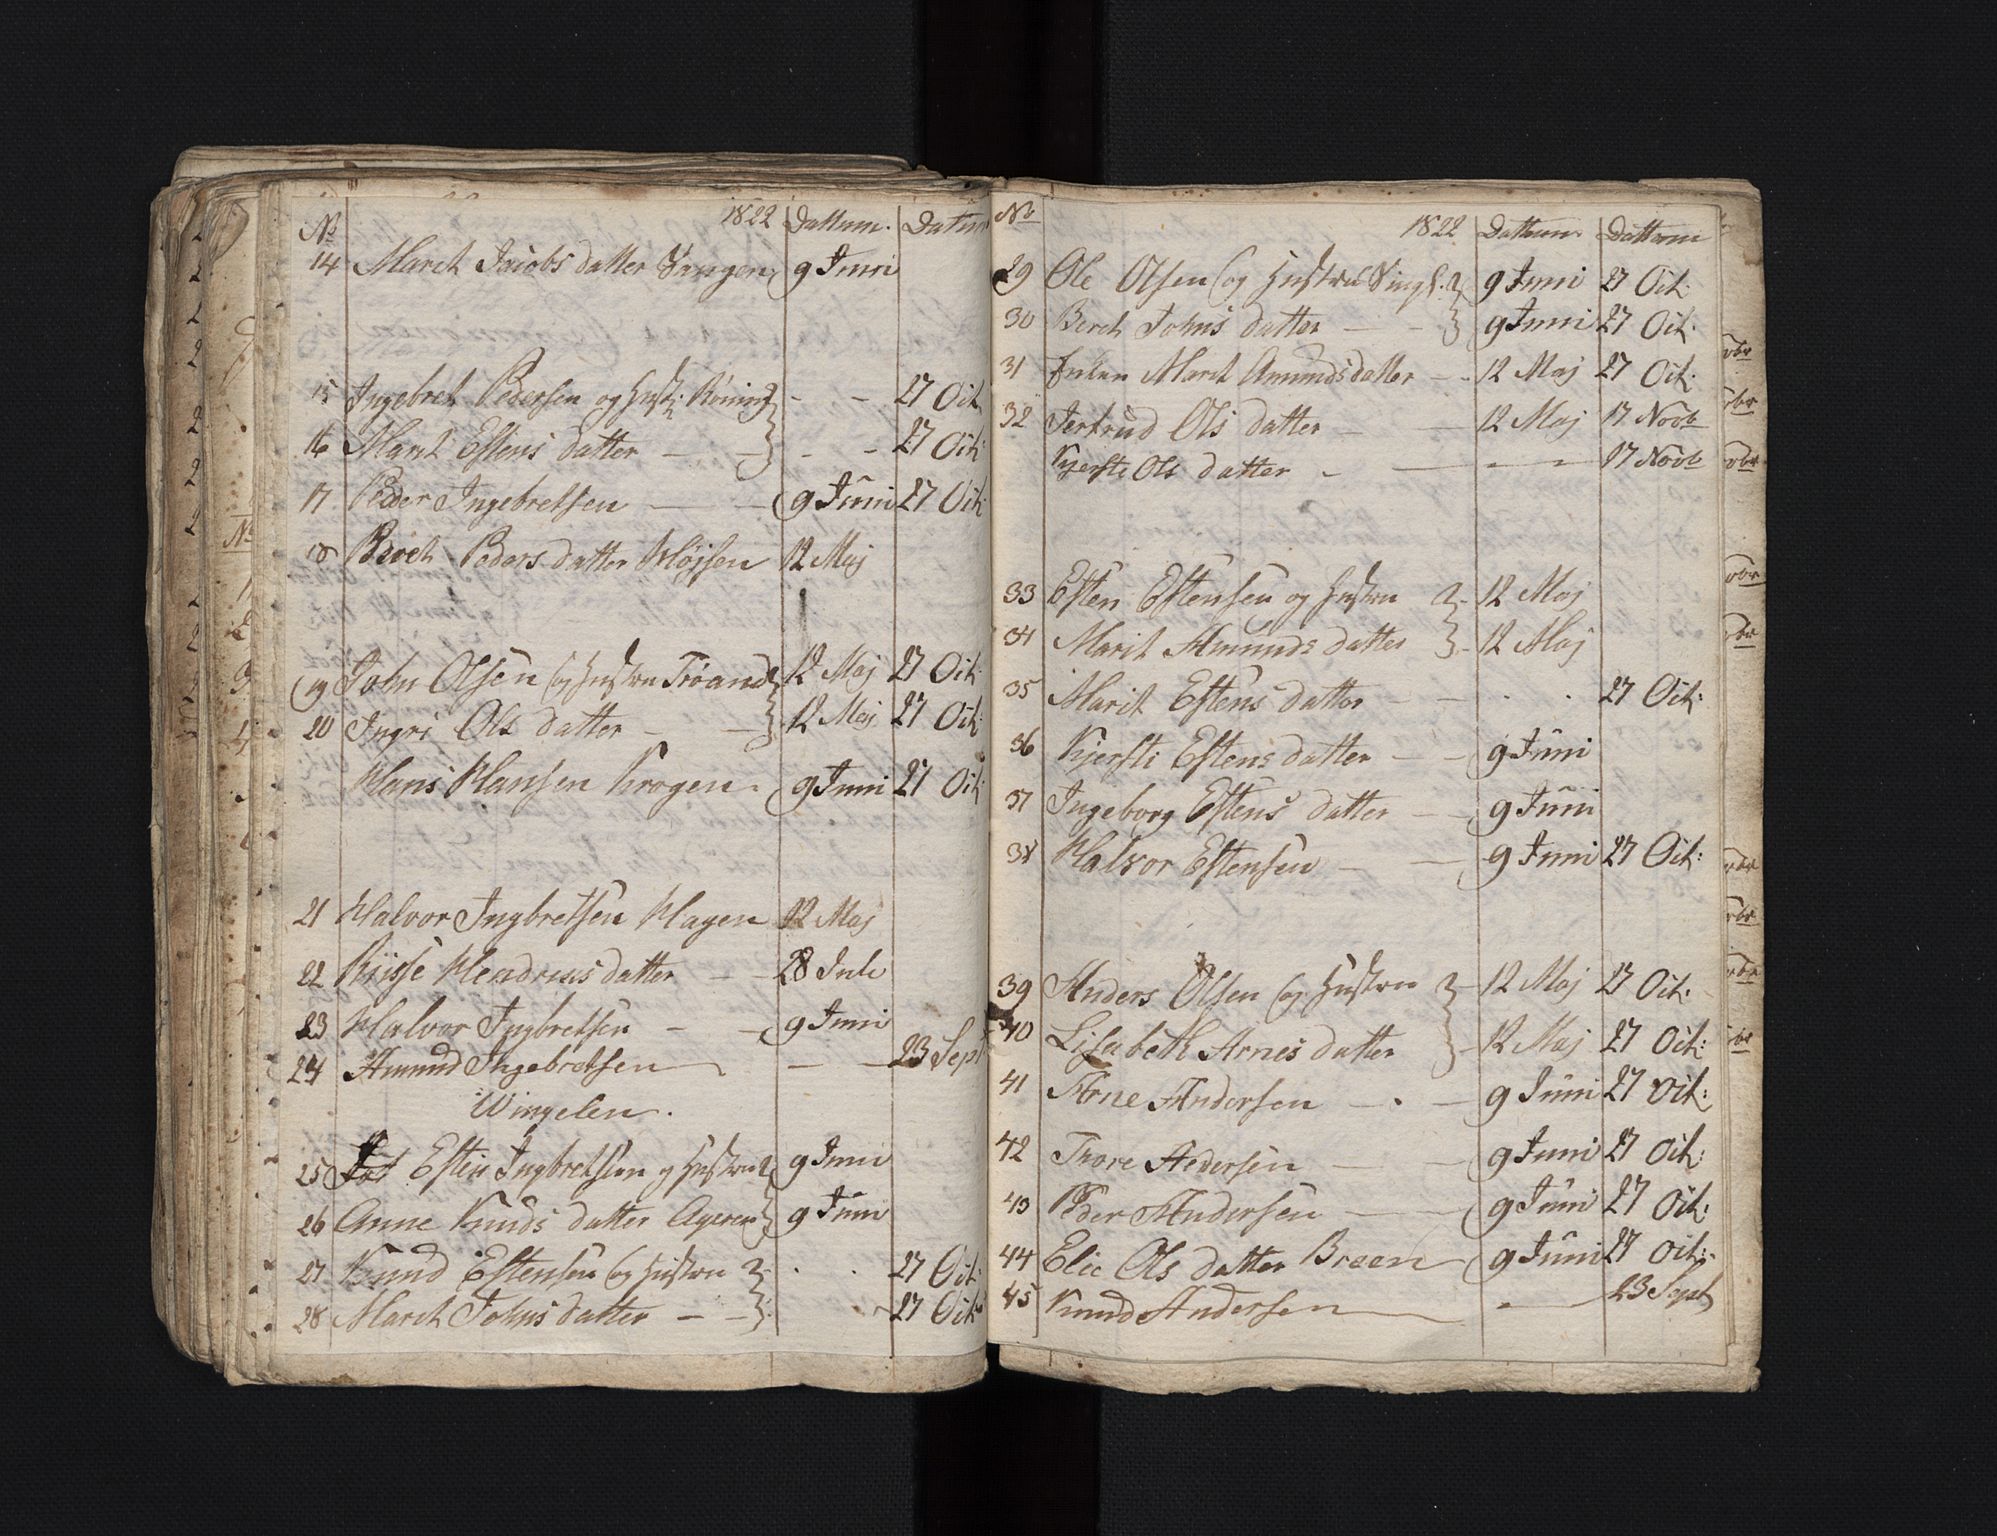 No 1822 Dattum. Datum
14 Marit Jacobs datter Vangen 9 Juni
15 Ingebret Pedersen og Hust: Röning - - 27 Oct
16 Marit Estens datter - - - - 27 Oct:
17 Peder Ingebretsen - - 9 Juni 27 Oct:
18 Beret Peders datter Høysen 12 Maj
19 John Olsen og Hustru Trøand 12 Maj 27 Oct:
20 Ingri Ols datter - - 12 Maj 27 Oct:
Hans Hansen Krogen - 9 Juni 27 Oct:
21 Halvor Ingbretsen Hagen 12 Maj
22 Risse Hendrics datter - - 28 Juli
23 Halvor Ingbretsen - - 9 Juni
24 Amund Ingebretsen - - 23 Sept
Wingelen.
25 Esten Ingbretsen og Hustru 9 Juni
26 Anne Knuds datter Ageren 9 Juni
27 Knud Estensen og Hustru - . . 27 Oct:
28 Marit Johns datter - - 27 Oct:
No 1822 Dattum Dattum
29 Ole Olsen og Hustru Vingl. 9 Juni 27 Oct:
30 Beret Johns datter - - 9 Juni 27 Oct:
31 Marit Amunds datter - - 12 Maj 27 Oct:
32 Jertrud Ols datter - - 12 Maj 17 Novb
Kjersti Ols datter - - - - 17 Novb
33 Esten Estensen og Hustru - 12 Maj
34 Marit Amunds datter - 12 Maj
35 Marit Estens datter - - . . 27 Oct:
36 Kjersti Estens datter - - 9 Juni
37 Ingeborg Estens datter - - 9 Juni
38 Halvor Estensen - - 9 Juni 27 Oct:
39 Anders Olsen og Hustru - 12 Maj 27 Oct:
40 Lisabeth Arnes datter - 12 Maj 27 Oct:
41 Arne Andersen - . - 9 Juni 27 Oct:
42 Thore Andersen - - 9 Juni 27 Oct:
43 Peder Andersen - - 9 Juni 27 Oct:
44 Elie Ols datter Breen - 9 Juni 27 Oct:
45 Knud Andersen - - 23 Sept